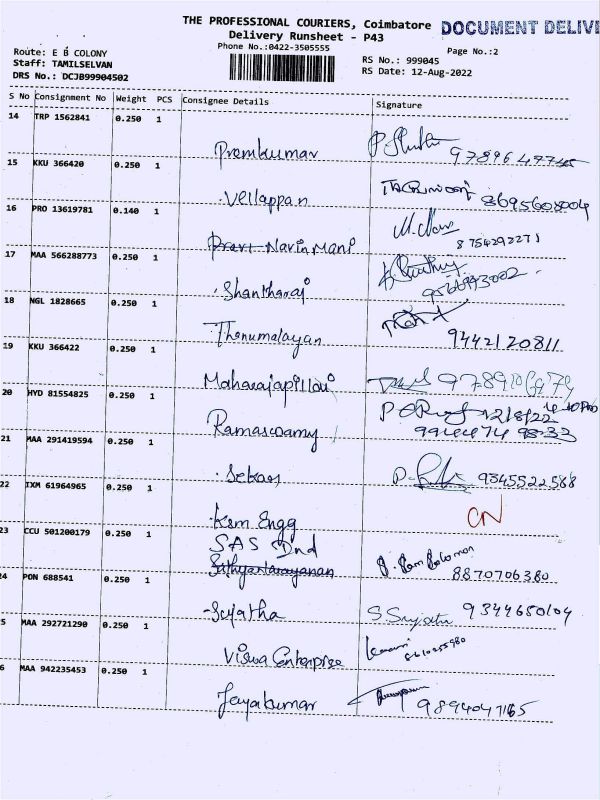 THE PROFESSIONAL COURIERS, Coimbatore DOCUMENT DELIVE
Delivery Runsheet - P43
Phone No.:0422-3505555
Page No.:2
Route: E B COLONY
RS No.: 999045
Staff: TAMILSELVAN
RS Date: 12-Aug-2022
DRS No.: DCJB99904502
S No Consignment No Weight PCS Consignee Details Signature
14 TRP 1562841 0.250 1
Premkumar
15 KKU 366420 0.250 1
Vellappan 8695608004
16 PRO 13619781 0.140 1
Navin Mani 8754292271
17 MAA 566288773 0.250 1
Shantharaj
18 NGL 1828665 0.250 1
Thanumalayan 9442120811
19 KKU 366422 0.250 1
Maharajapillai
20 HYD 81554825 0.250 1
12/8/22
Ramaswamy
21 MAA 291419594 0.250 1
Sekar 9345522588
22 IXM 61964965 0.250 1
CN
Ksm Engg
23 CCU 501200179 0.250 1
SAS Ind
Sathyanarayanan 8870706380
24 PON 688541 0.250 1
Sujatha S Sujatha 9344650104
5 MAA 292721290 0.250 1
Viswa Enterprise
6 MAA 942235453 0.250 1
Jayakumar 9894047165